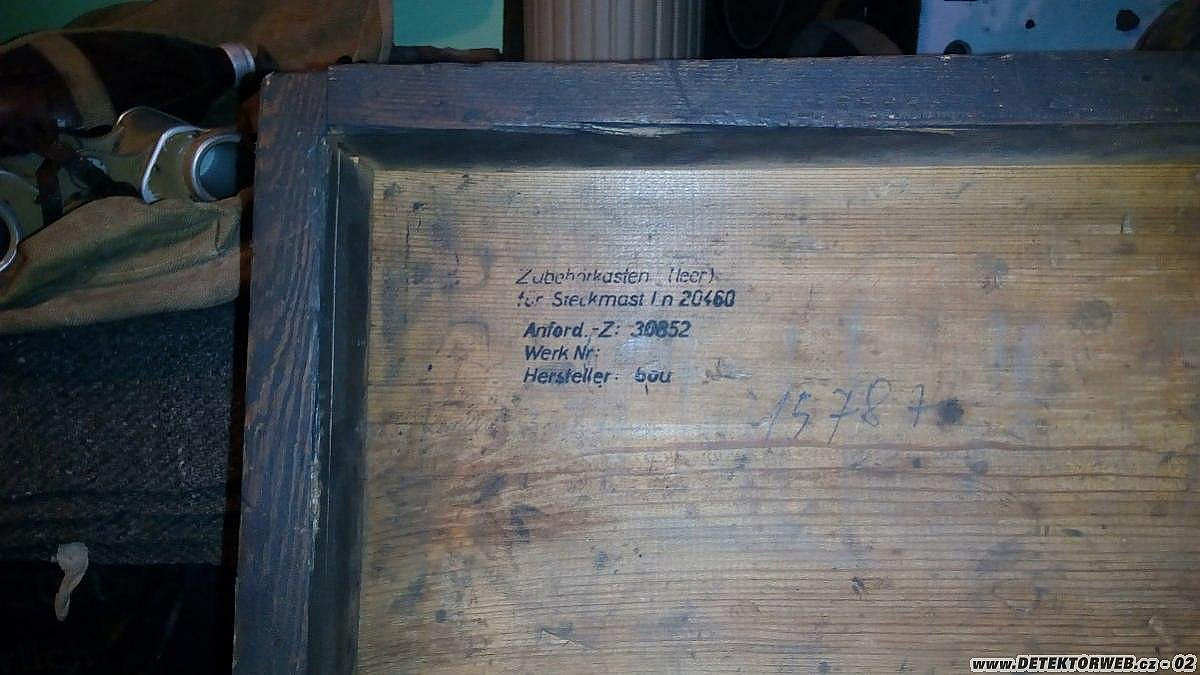 Zubehörkasten (leer)
für Steckmast Ln 20460
Anford.-Z: 30852
Werk Nr:
Hersteller: bou
15787
www.DETEKTORWEB.cz - 02